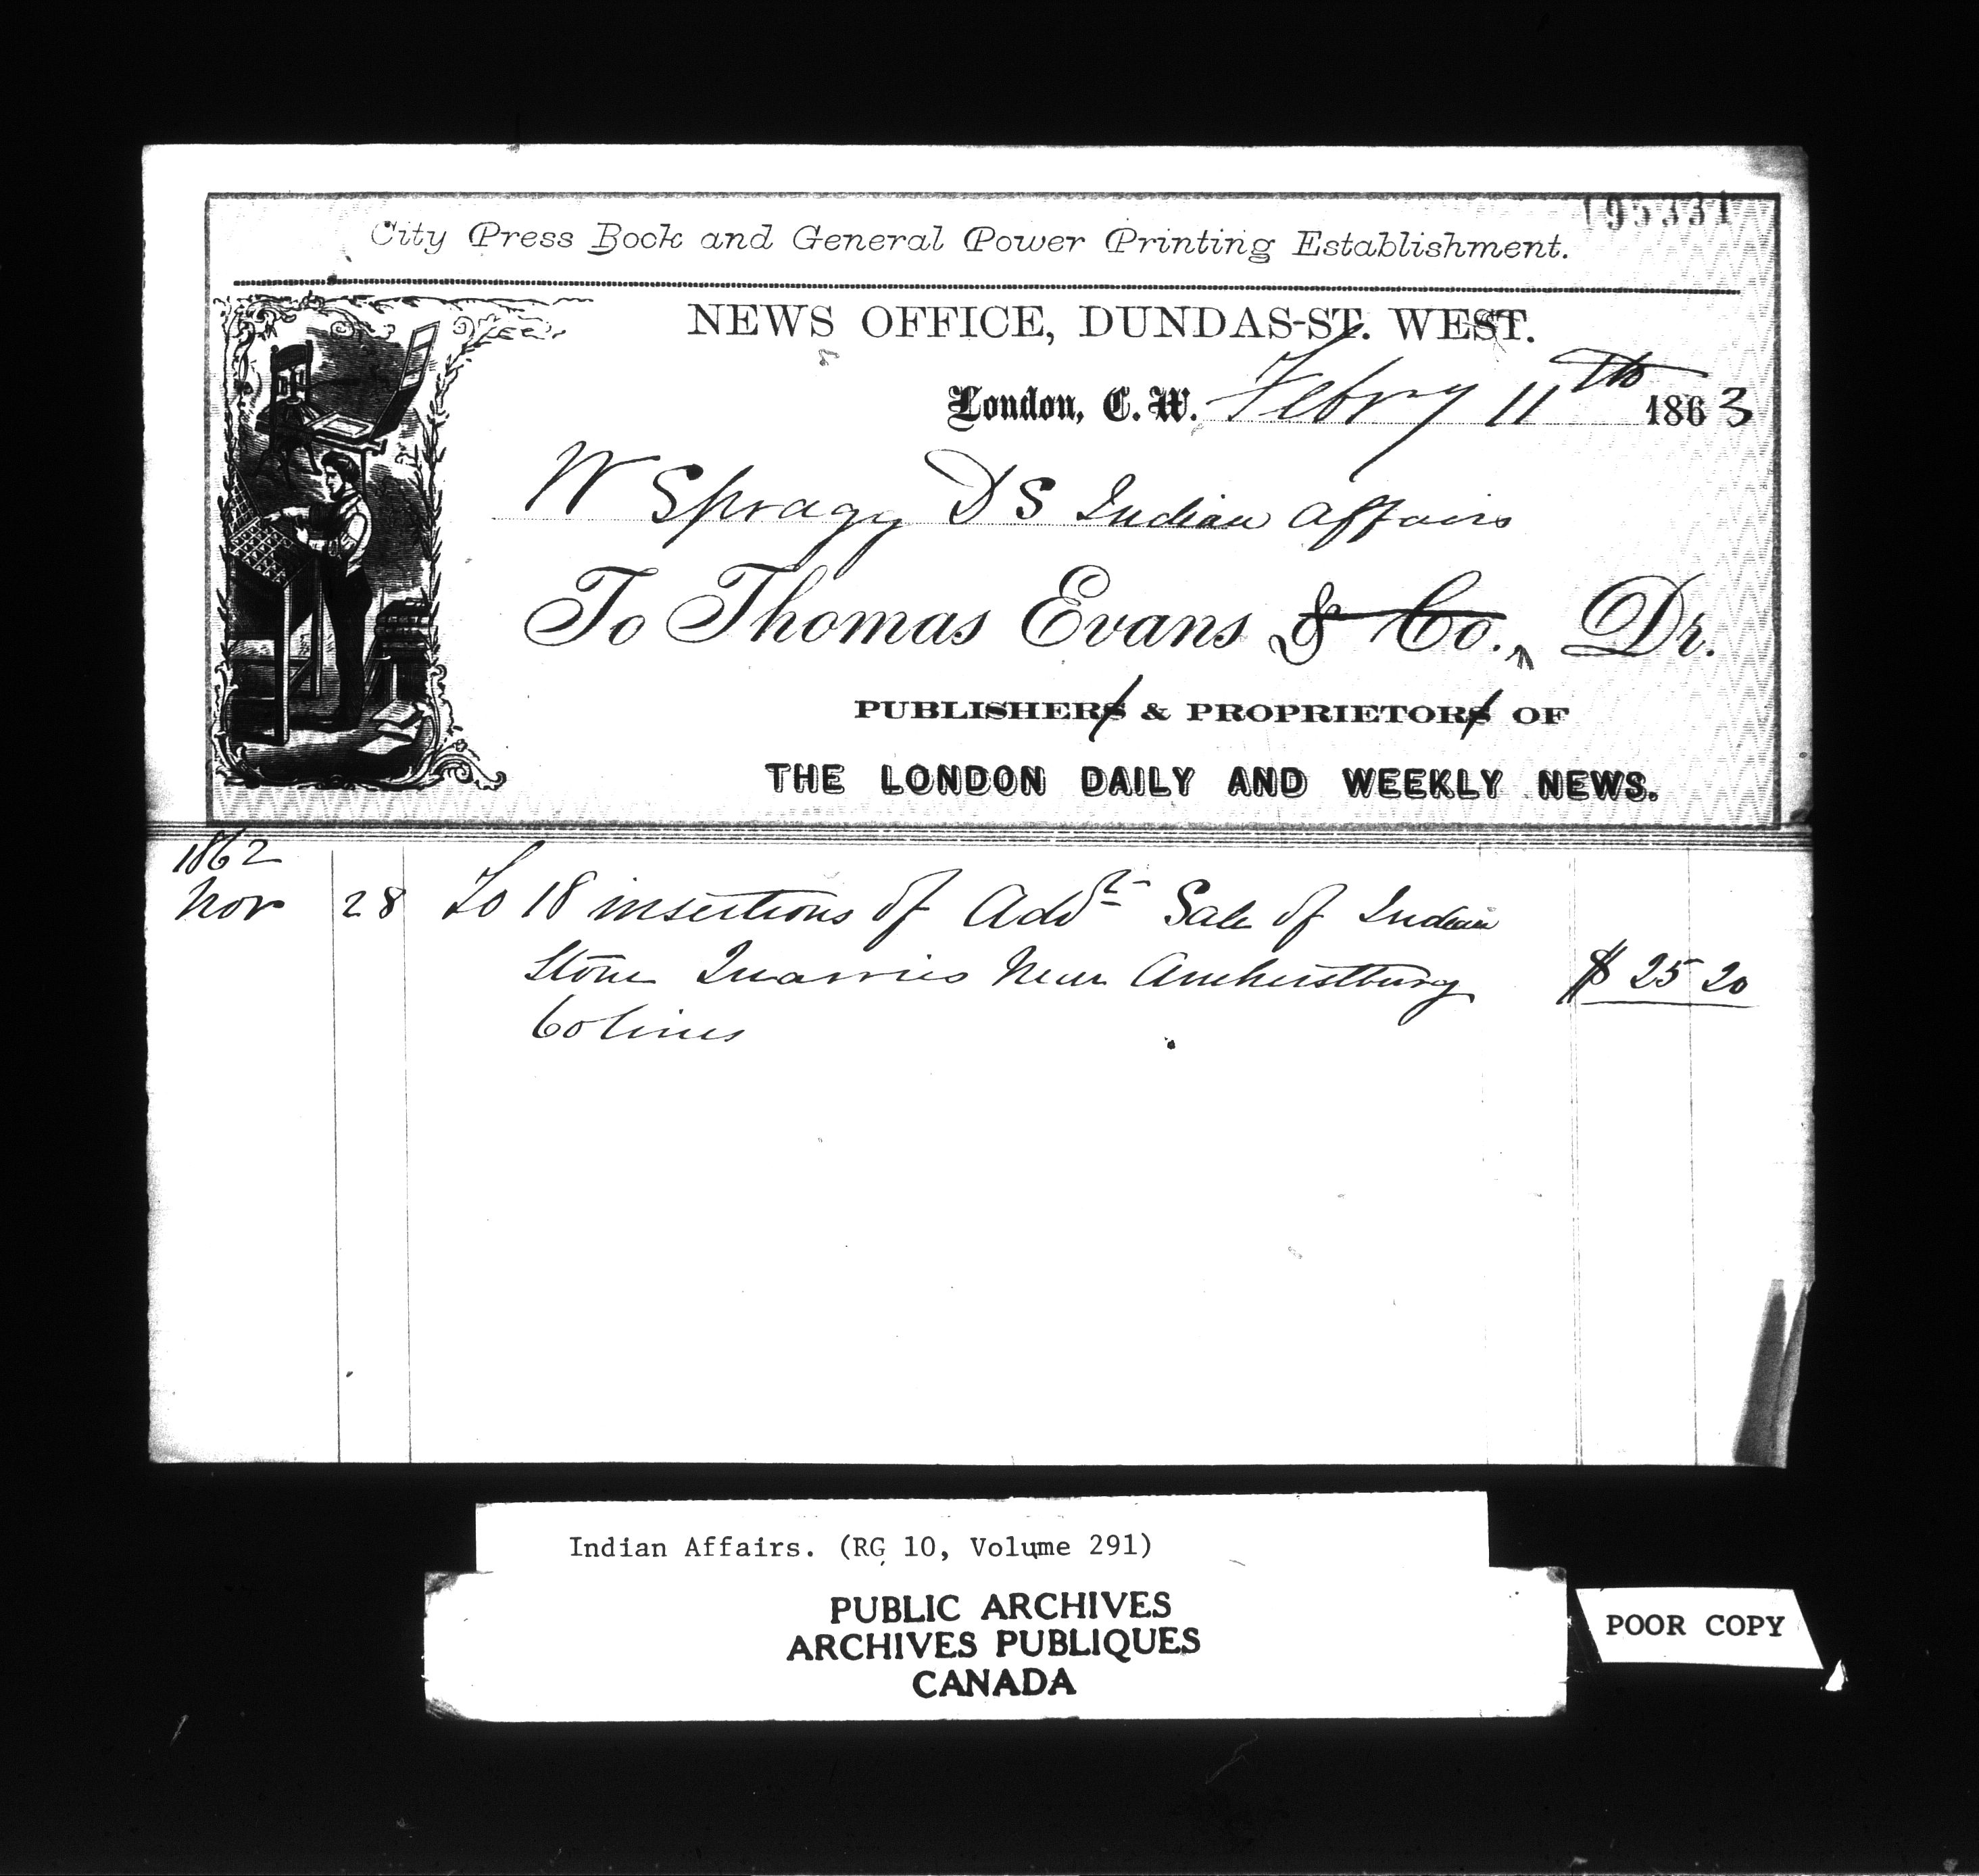 195331
City Press Book and General Power Printing Establishment.
NEWS OFFICE, DUNDAS-ST. WEST.
London, C. W. Febry 11th 1863
W Spragg D S Indian Affairs
To Thomas Evans & Co., Dr.
PUBLISHERS & PROPRIETORS OF
THE LONDON DAILY AND WEEKLY NEWS.
1862
Nov 28 To 18 insertions of Advt Sale of Indian
Stone Quarries Near Amherstburg $ 25 20
60 lines
Indian Affairs. (RG 10, Volume 291)
PUBLIC ARCHIVES
ARCHIVES PUBLIQUES
CANADA
POOR COPY